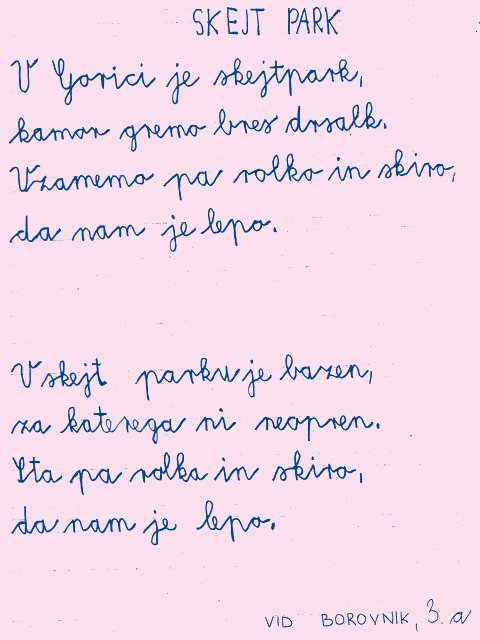 SKEJT PARK
V Gorici je skejtpark,
kamor gremo brez drsalk.
Vzamemo pa rolko in skiro,
da nam je lepo.
V skejt parku je bazen,
za katerega ni neopren.
Sta pa rolka in skiro,
da nam je lepo.
VID BOROVNIK, 3. a